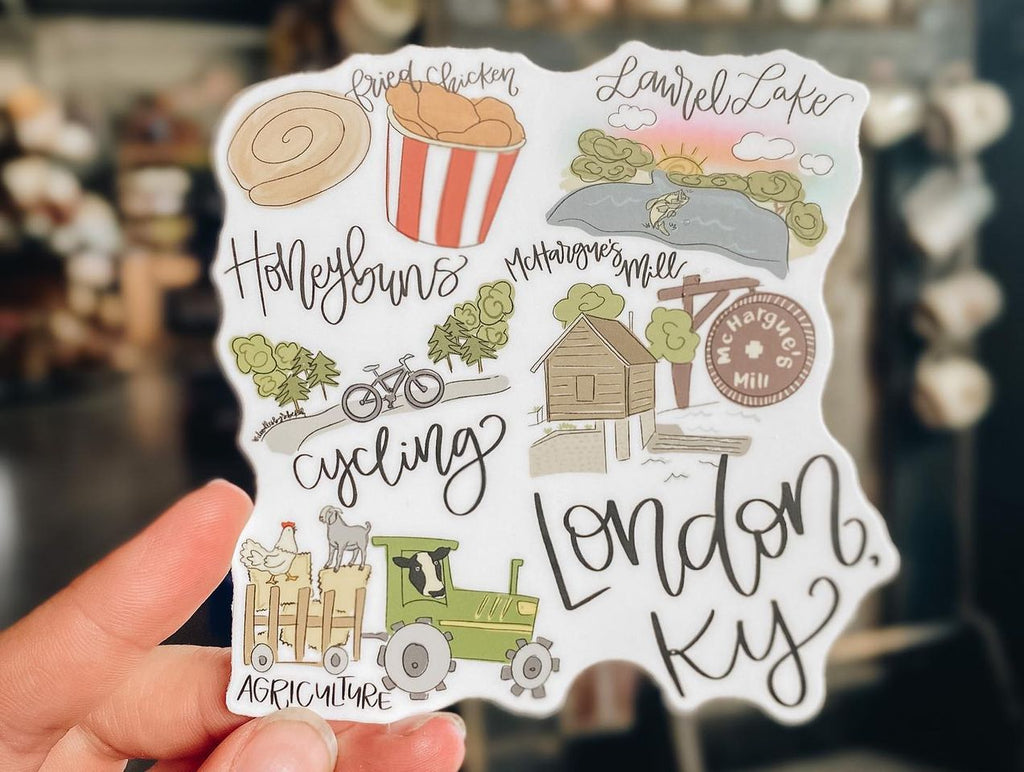 fried chicken
Laurel Lake
Honeybuns
McHargue's Mill
McHargue's
Mill
cycling
London,
Ky
AGRICULTURE